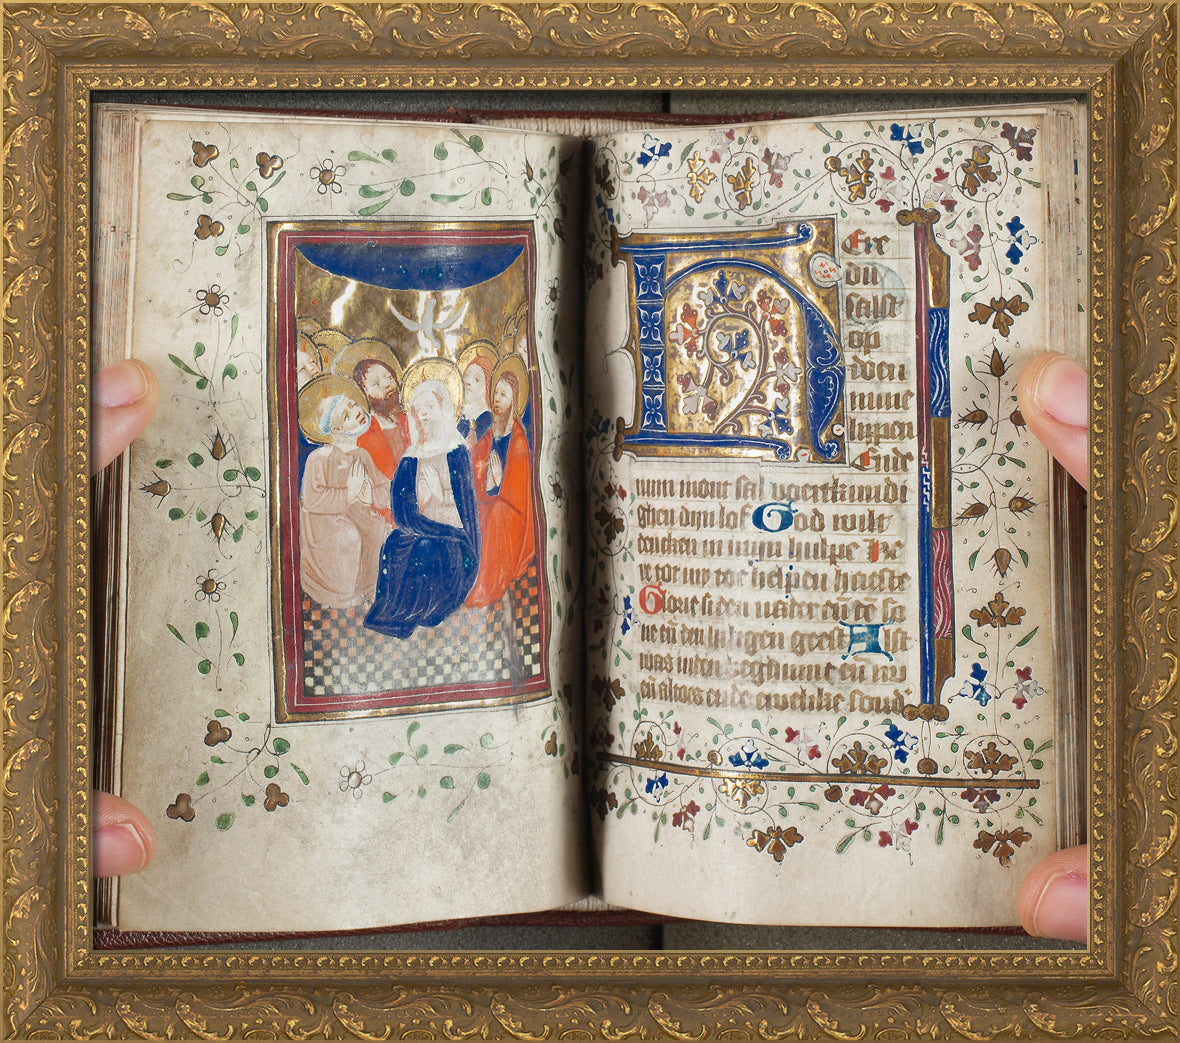 HEre
du
salst
op
doen
mine
lippen
Ende
mijn mont sal voertkundi
ghen dijn lof God wilt
dencken in mijn hulpe He
re tot my toe helpen haeste
Glorie si den vader eñ dē so
ne eñ den hilighen geest Alst
was inden beghinne eñ nu
eñ altoes ende ewelike sond'